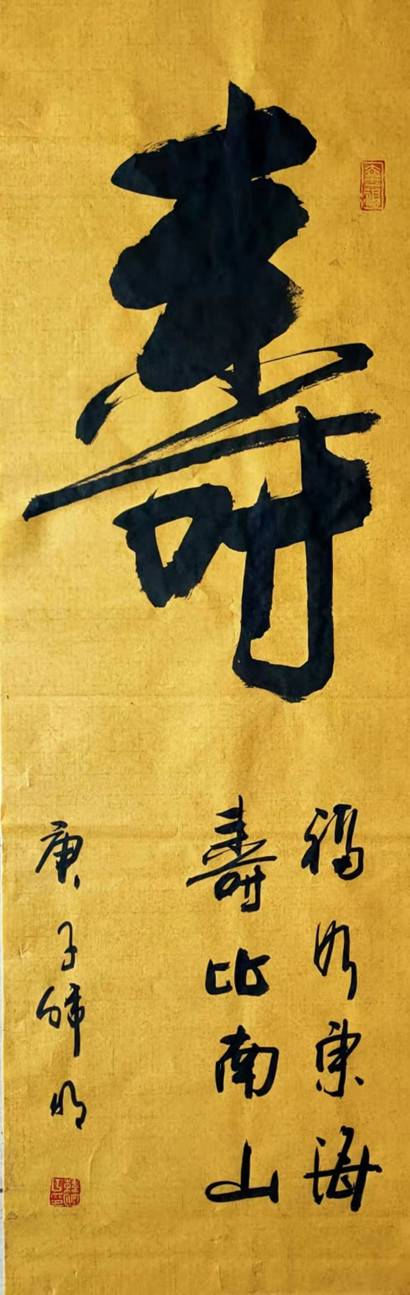 壽
福如东海
壽比南山
庚子师明